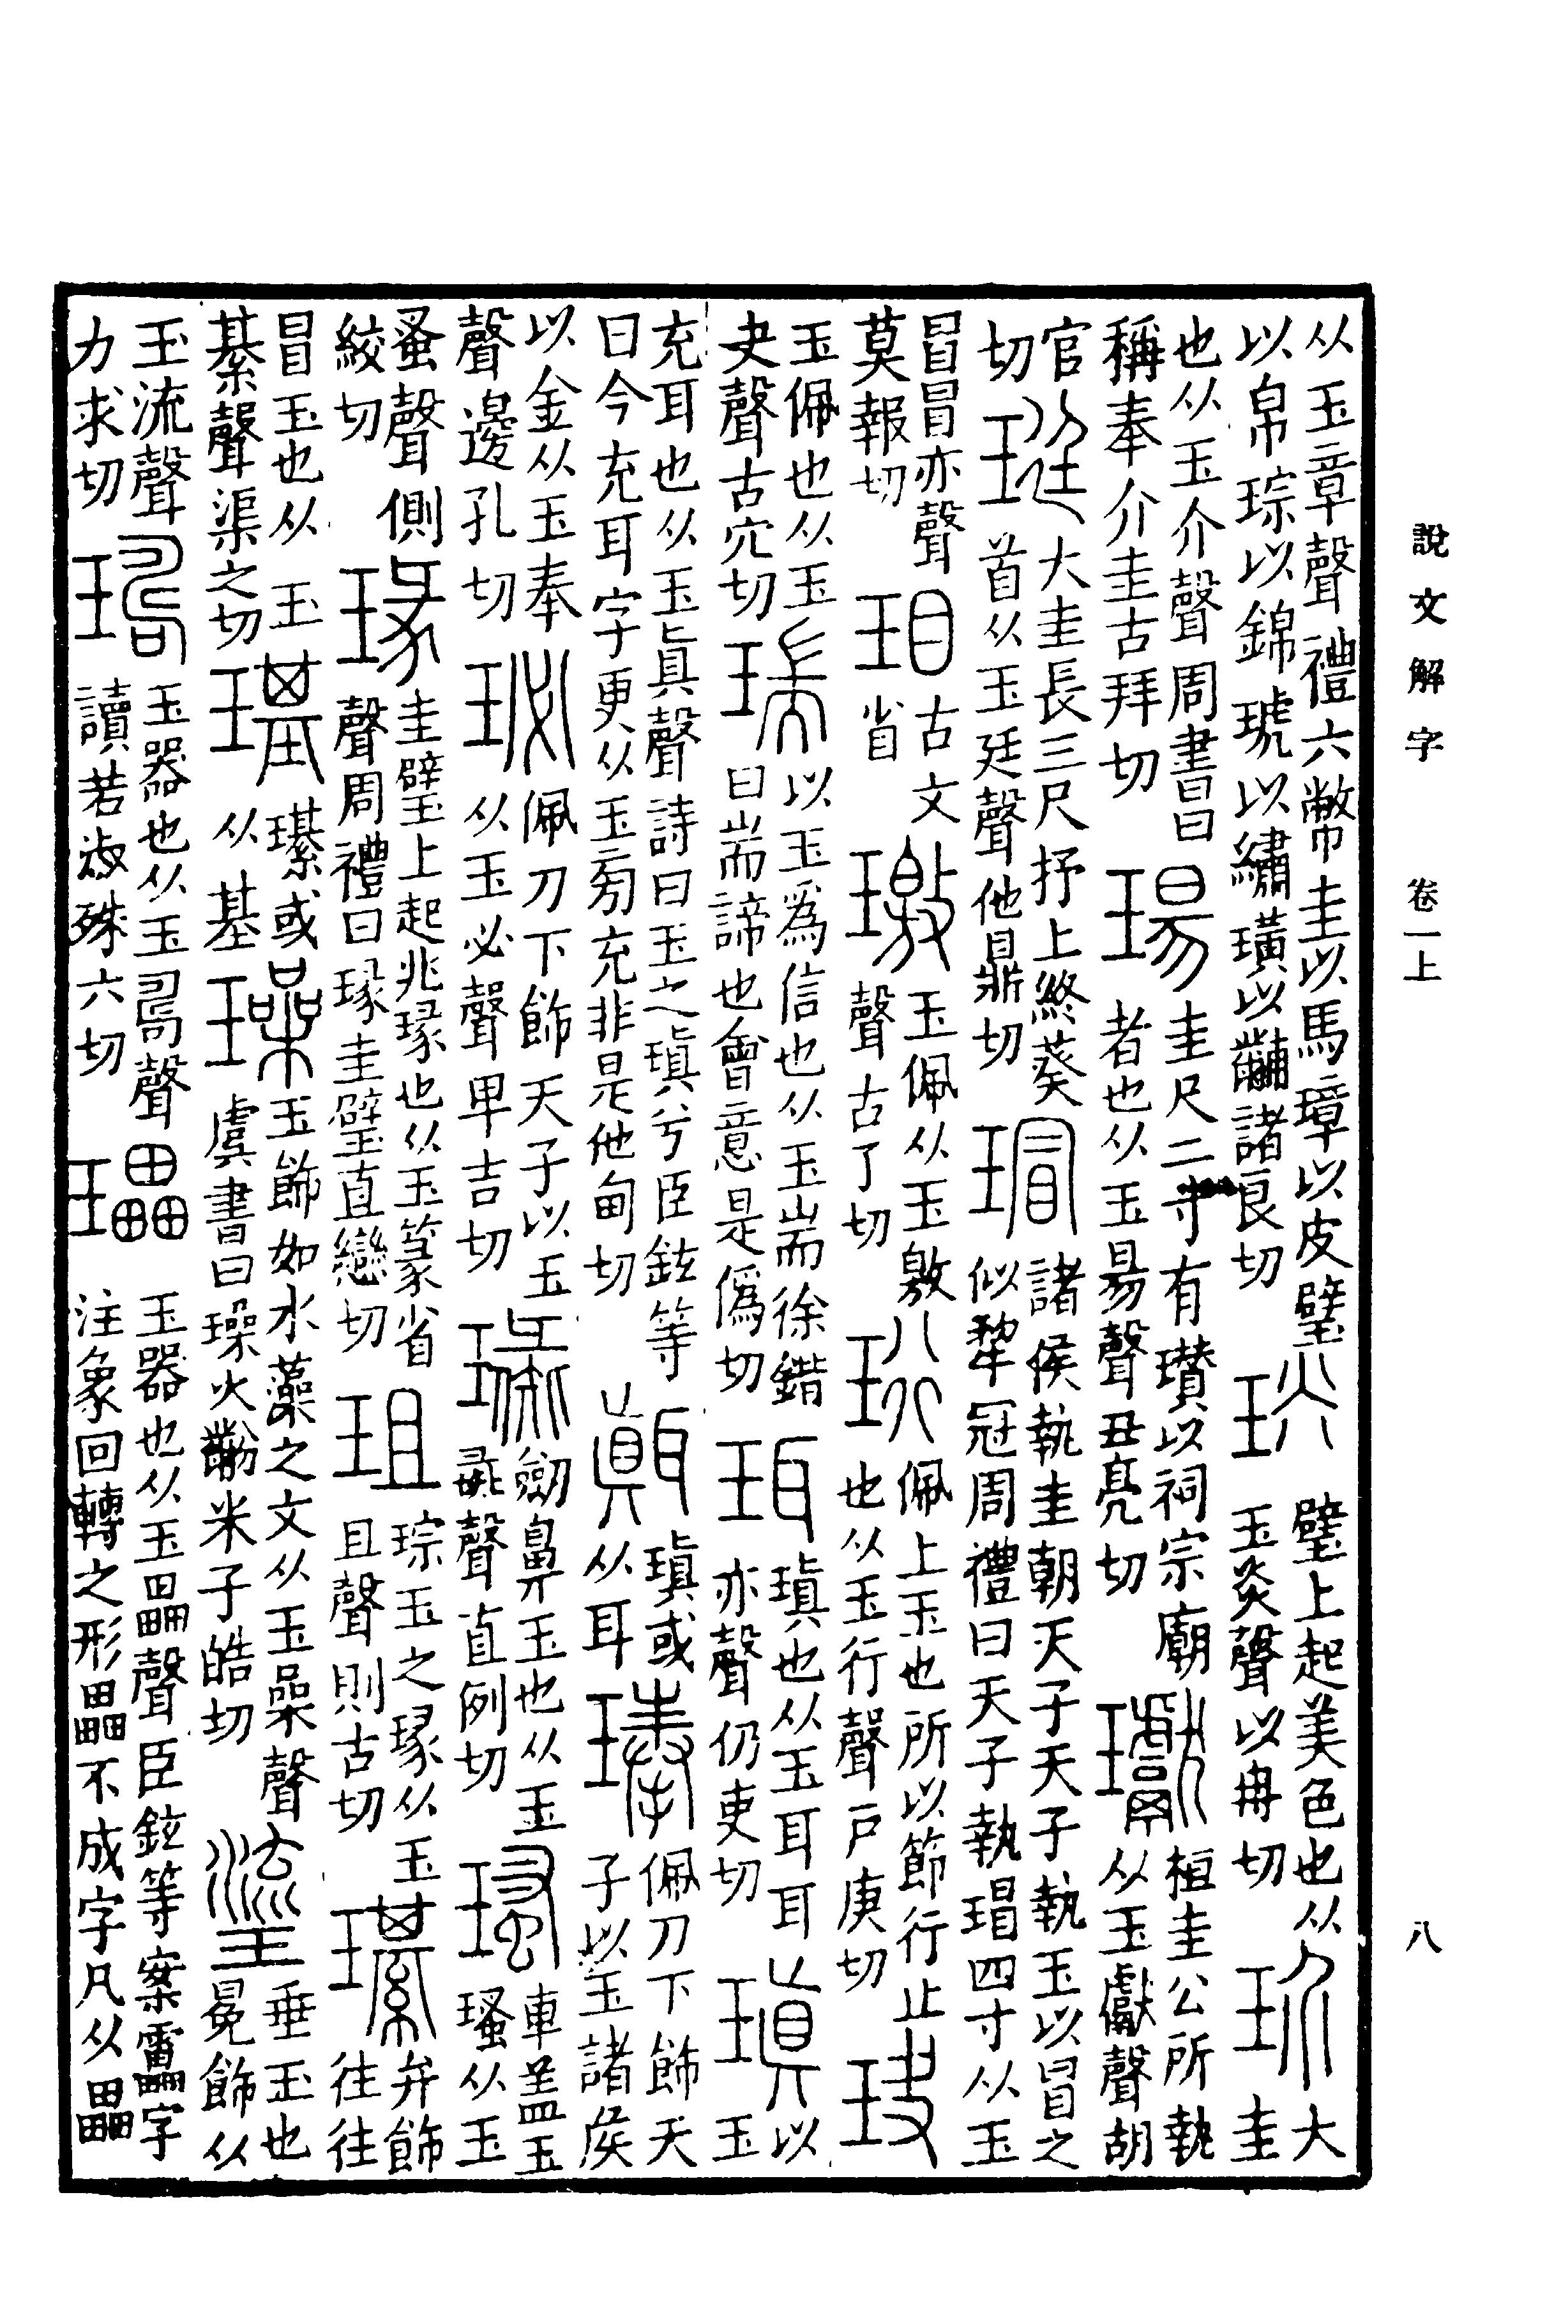 說文解字 卷一上 八
从玉章聲禮六幣圭以馬璋以皮璧
以帛琮以錦琥以繡璜以黼諸良切
琰
璧上起美色也从
玉炎聲以冉切
玠
大
圭
也从玉介聲周書曰
稱奉介圭古拜切
瑒
圭尺二寸有瓚以祠宗廟
者也从玉昜聲丑亮切
瓛
桓圭公所執
从玉獻聲胡
官
切
珽
大圭長三尺抒上終葵
首从玉廷聲他鼎切
瑁
諸侯執圭朝天子天子執玉以冒之
似犂冠周禮曰天子執瑁四寸从玉
冒冒亦聲
莫報切
古文
省
璬
玉佩从玉敫
聲古了切
珩
佩上玉也所以節行止
也从玉行聲戶庚切
玦
玉佩也从玉
夬聲古穴切
瑞
以玉爲信也从玉耑徐鍇
曰耑諦也會意是僞切
珥
瑱也从玉耳耳
亦聲仍吏切
瑱
以
玉
充耳也从玉眞聲詩曰玉之瑱兮臣鉉等
曰今充耳字更从玉㫄充非是他甸切
瑱或
从耳
琫
佩刀下飾天
子以玉諸侯
以金从玉奉
聲邊孔切
珌
佩刀下飾天子以玉
从玉必聲卑吉切
璏
劒鼻玉也从玉
彘聲直例切
瑵
車蓋玉
瑵从玉
蚤聲側
絞切
瑑
圭璧上起兆瑑也从玉篆省
聲周禮曰瑑圭璧直戀切
珇
琮玉之瑑从玉
且聲則古切
璂
弁飾
往往
冒玉也从玉
綦聲渠之切
璂
璂或
从基
璪
玉飾如水藻之文从玉喿聲
虞書曰璪火黺米子皓切
瑬
垂玉也
冕飾从
玉流聲
力求切
璹
玉器也从玉𠷎聲
讀若淑殊六切
瓃
玉器也从玉畾聲臣鉉等案靁字
注象回轉之形畾不成字凡从畾